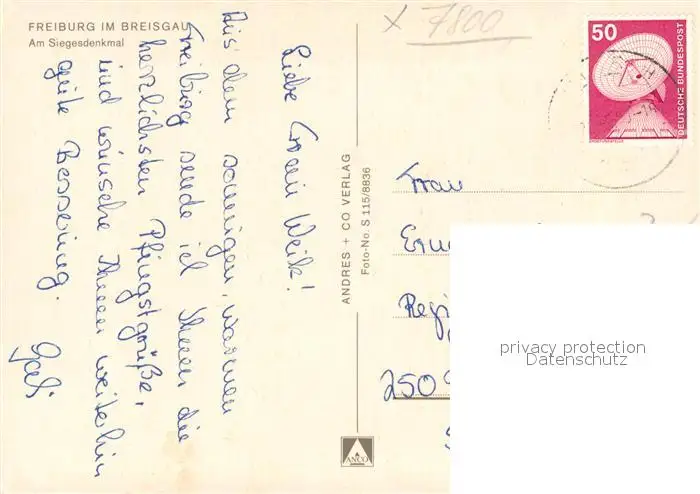 FREIBURG IM BREISGAU
Am Siegesdenkmal
Liebe Frau Weik!
Aus dem sonnigen, warmen
Freiburg sende ich Ihnen die
herzlichsten Pfingstgrüße,
und wünsche Ihnen weiterhin
gute Besserung.
Gabi
ANDRES + CO VERLAG
Foto-No. S 115/8836
ANCO
x 7800
50
DEUTSCHE BUNDESPOST
Frau
250
privacy protection
Datenschutz